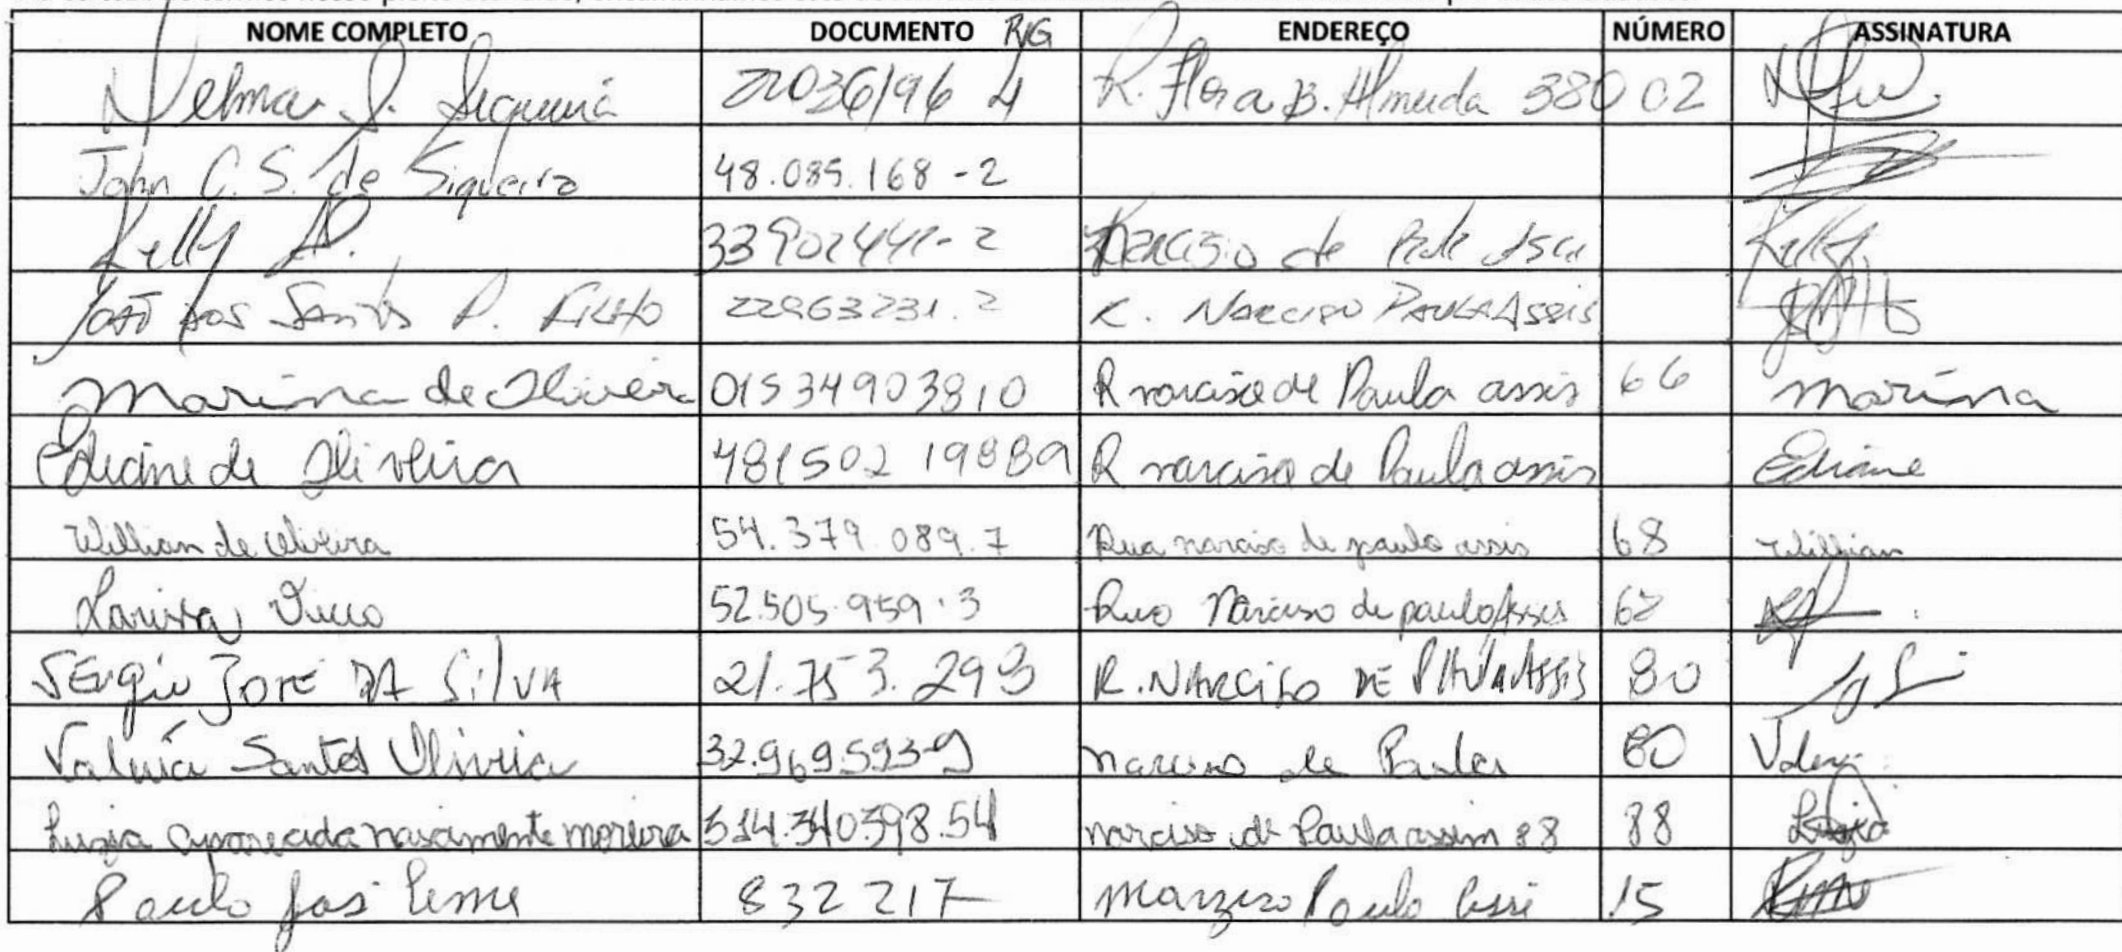 NOME COMPLETO DOCUMENTO R/G ENDEREÇO NÚMERO ASSINATURA
Velma S. Siqueira 22036196 4 R. Flora B. Almeida 380 02
John C. S. de Siqueira 48.085.168-2
Kelly 33902441-2 Narciso de
João dos Santos P. Filho 22963231.2 R. Narciso Paula Assis
Marina de Oliveira 01534903810 R narciso de Paula assis 66 marina
Ediane de Oliveira 481502 19889 R narciso de Paula assis Ediane
Willian de oliveira 54.379.089.7 Rua narciso de paula assis 68 Willian
Larissa 52.505.959.3 Rua Narciso de paula Assis 62
Sergio José DA Silva 21.753.293 R. NARCISO DE PAULA ASSIS 80
Valeria Santos Oliveira 32.969.593-9 narciso de Paula 80
Luzia aparecida nascimento moreira 514.340.598.54 narciso de Paula assim 88 88 Luzia
Paulo José Leme 832 217 Paulo 15